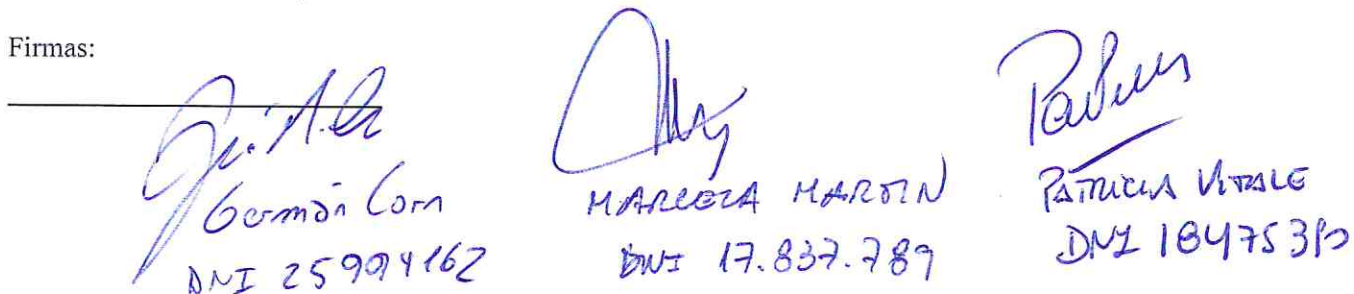 Firmas:
Germán Corn
DNI 25994162
MARCELA MARTIN
DNI 17.837.789
PATRICIA VITALE
DNI